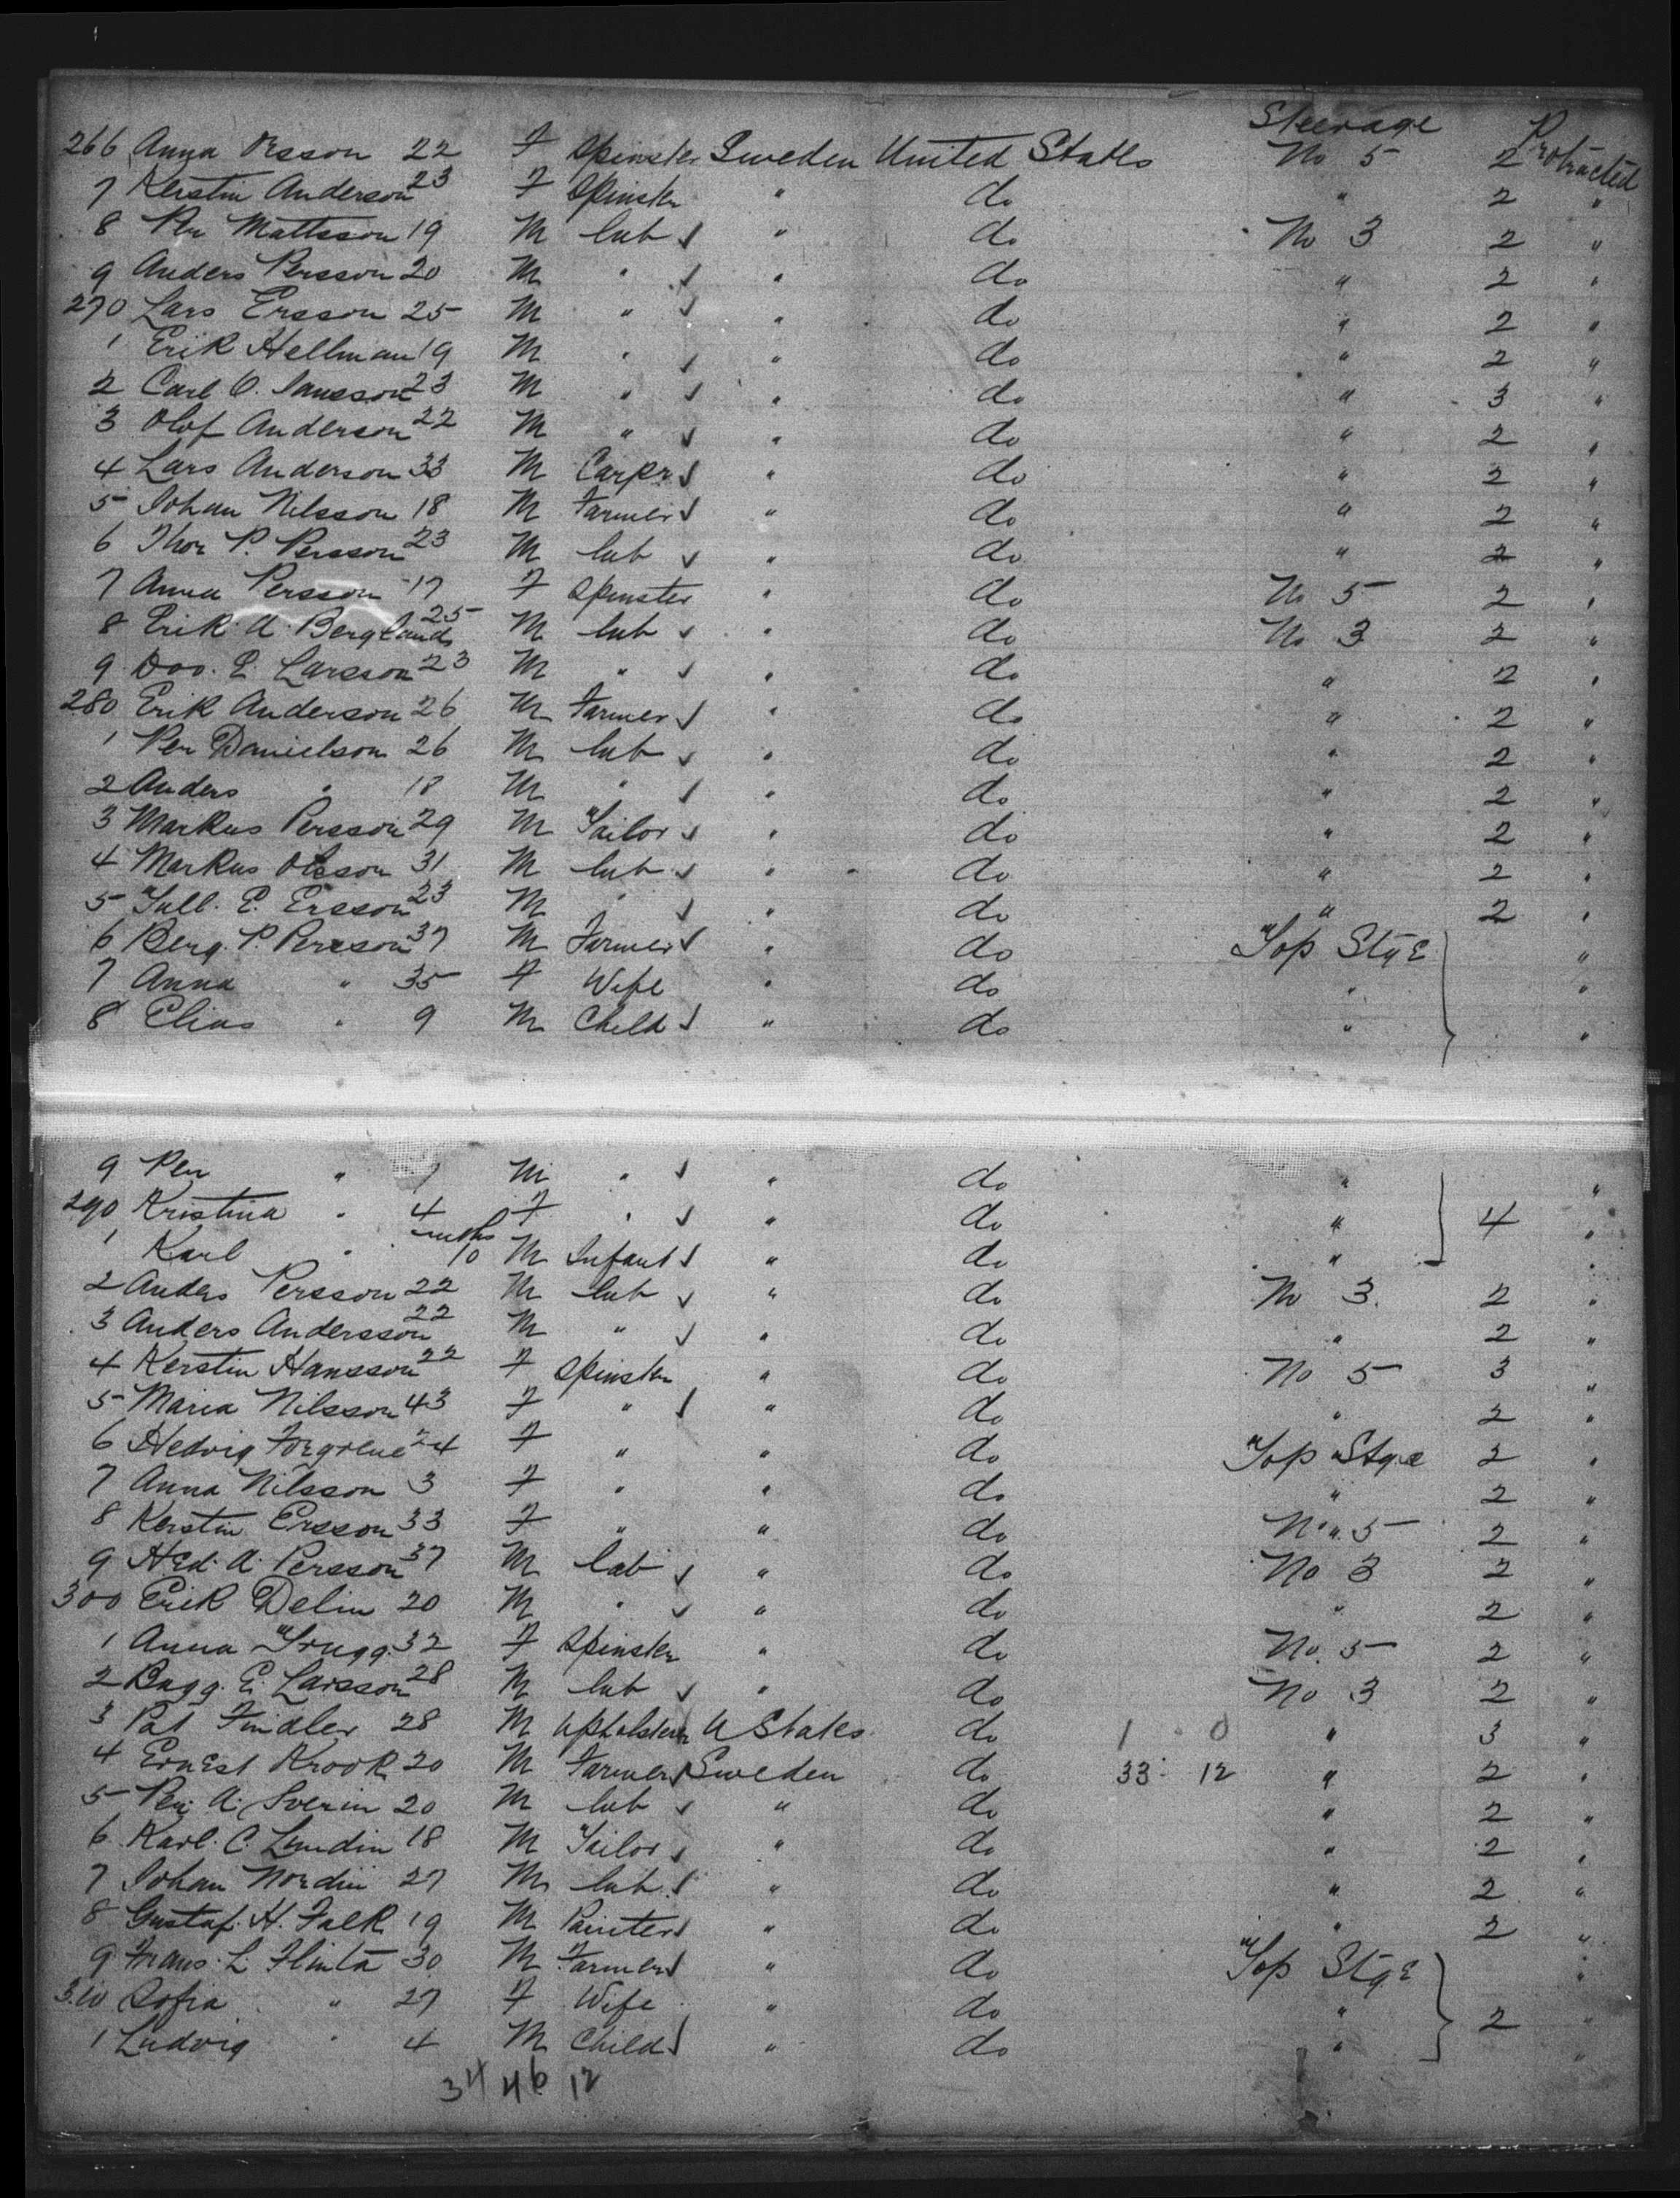 Steerage
266 Anna Ersson 22 F Spinster Sweden United States No 5 2 Protracted
7 Kerstin Anderson 23 F Spinster " do " 2 "
8 Per Mattsson 19 M Lab " do No 3 2 "
9 Anders Persson 20 M " " do " 2 "
270 Lars Ersson 25 M " " do " 2 "
1 Erik Hellman 19 M " " do " 2 "
2 Carl O. Jansson 23 M " " do " 3 "
3 Olof Anderson 22 M " " do " 2 "
4 Lars Anderson 33 M Carpr " do " 2 "
5 Johan Nilsson 18 M Farmer " do " 2 "
6 Thor P. Persson 23 M Lab " do " 2 "
7 Anna Persson 17 F Spinster " do No 5 2 "
8 Erik A. Berglands 25 M Lab " do No 3 2 "
9 E. Larsson 23 M " " do " 2 "
280 Erik Anderson 26 M Farmer " do " 2 "
1 Per Danielson 26 M Lab " do " 2 "
2 Anders " 18 M " " do " 2 "
3 Markus Persson 29 M Tailor " do " 2 "
4 Markus Olsson 31 M Lab " do " 2 "
5 E. Ersson 23 M " " do " 2 "
6 Berg. P. Persson 37 M Farmer " do Top StgE "
7 Anna " 35 F Wife " do " "
8 Elias " 9 M Child " do " "
9 Per " 7 M " " do " "
290 Kristina " 4 F " " do " 4 "
1 Karl " mths 10 M Infant " do " "
2 Anders Persson 22 M Lab " do No 3. 2 "
3 Anders Andersson 22 M " " do " 2 "
4 Kerstin Hansson 22 F Spinster " do No 5 3 "
5 Maria Nilsson 43 F " " do " 2 "
6 Hedvig 24 F " " do Top Stge 2 "
7 Anna Nilsson 3 F " " do " 2 "
8 Kerstin Ersson 33 F " " do No 5 2 "
9 Hed. A. Persson 37 M Lab " do No 3 2 "
300 Erik Delin 20 M " " do " 2 "
1 Anna Trugg. 32 F Spinster " do No. 5 2 "
2 Bagg. E. Larsson 28 M Lab " do No 3 2 "
3 Pat Findler 28 M Upholsterer U States do 1 0 " 3 "
4 Ernest Krook 20 M Farmer Sweden do 33 12 " 2 "
5 Per. A. Sverin 20 M Lab " do " 2 "
6 Karl. C. Lundin 18 M Tailor " do " 2 "
7 Johan Nordin 27 M Lab. " do " 2 "
8 Gustaf. H. Falk 19 M Painter " do " 2 "
9 Frans. L. Flinta 30 M Farmer " do Top StgE "
310 Sofia " 27 F Wife " do " 2 "
1 Ludvig " 4 M Child " do " "
34 46 12